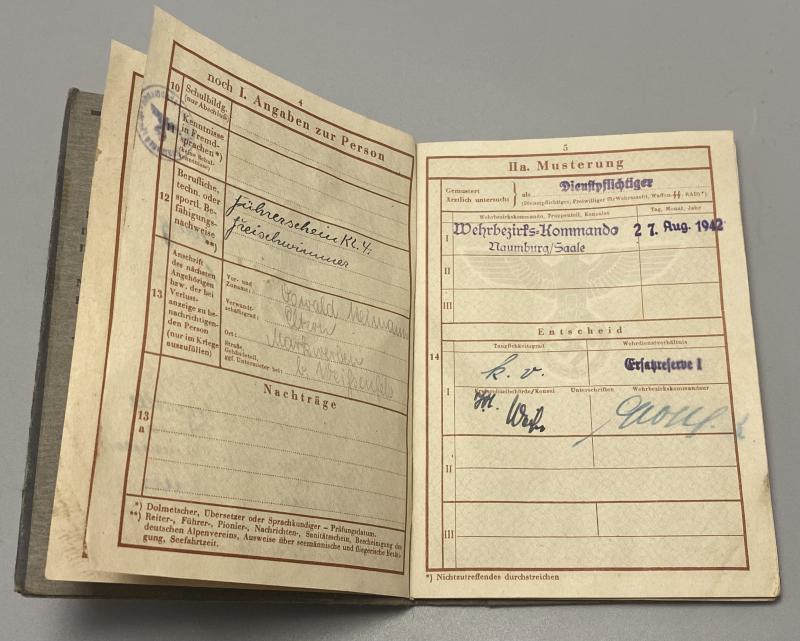 4
noch I. Angaben zur Person
10
Schulbildg.
(nur Abschluß)
Kenntnisse
in Fremd-
sprachen*)
12
Berufliche,
techn. oder
sportl. Be-
fähigungs-
nachweise
**)
Führerschein Kl. 4:
Freischwimmer
13
Anschrift
des nächsten
Angehörigen
bzw. der bei
Verlust-
anzeige zu be-
nachrichtigen-
den Person
(nur im Kriege
auszufüllen)
Vor- und
Zuname:
Oswald Hermann
Verwandt-
schaftsgrad:
Eltern
Ort:
Markwerben
Straße,
Gebäudeteil,
ggf. Untermieter bei:
b. Weißenfels
13
a
Nachträge
*) Dolmetscher, Übersetzer oder Sprachkundiger – Prüfungsdatum.
**) Reiter-, Führer-, Pionier-, Nachrichten-, Sanitätsschein, Bescheinigung des
deutschen Alpenvereins, Ausweise über seemännische und fliegerische Betäti-
gung, Seefahrtzeit.
5
IIa. Musterung
Gemustert
Ärztlich untersucht
als Dienstpflichtiger
(Dienstpflichtiger, Freiwilliger für Wehrmacht, Waffen-SS, RAD)*)
Wehrbezirkskommando, Truppenteil, Konsulat
Tag, Monat, Jahr
I
Wehrbezirks-Kommando
Naumburg/Saale
27. Aug. 1942
II
III
Entscheid
14
Tauglichkeitsgrad
Wehrdienstverhältnis
k. v.
Ersatzreserve I
I
Kreispolizeibehörde/Konsul
Unterschriften
Wehrbezirkskommandeur
II
III
*) Nichtzutreffendes durchstreichen